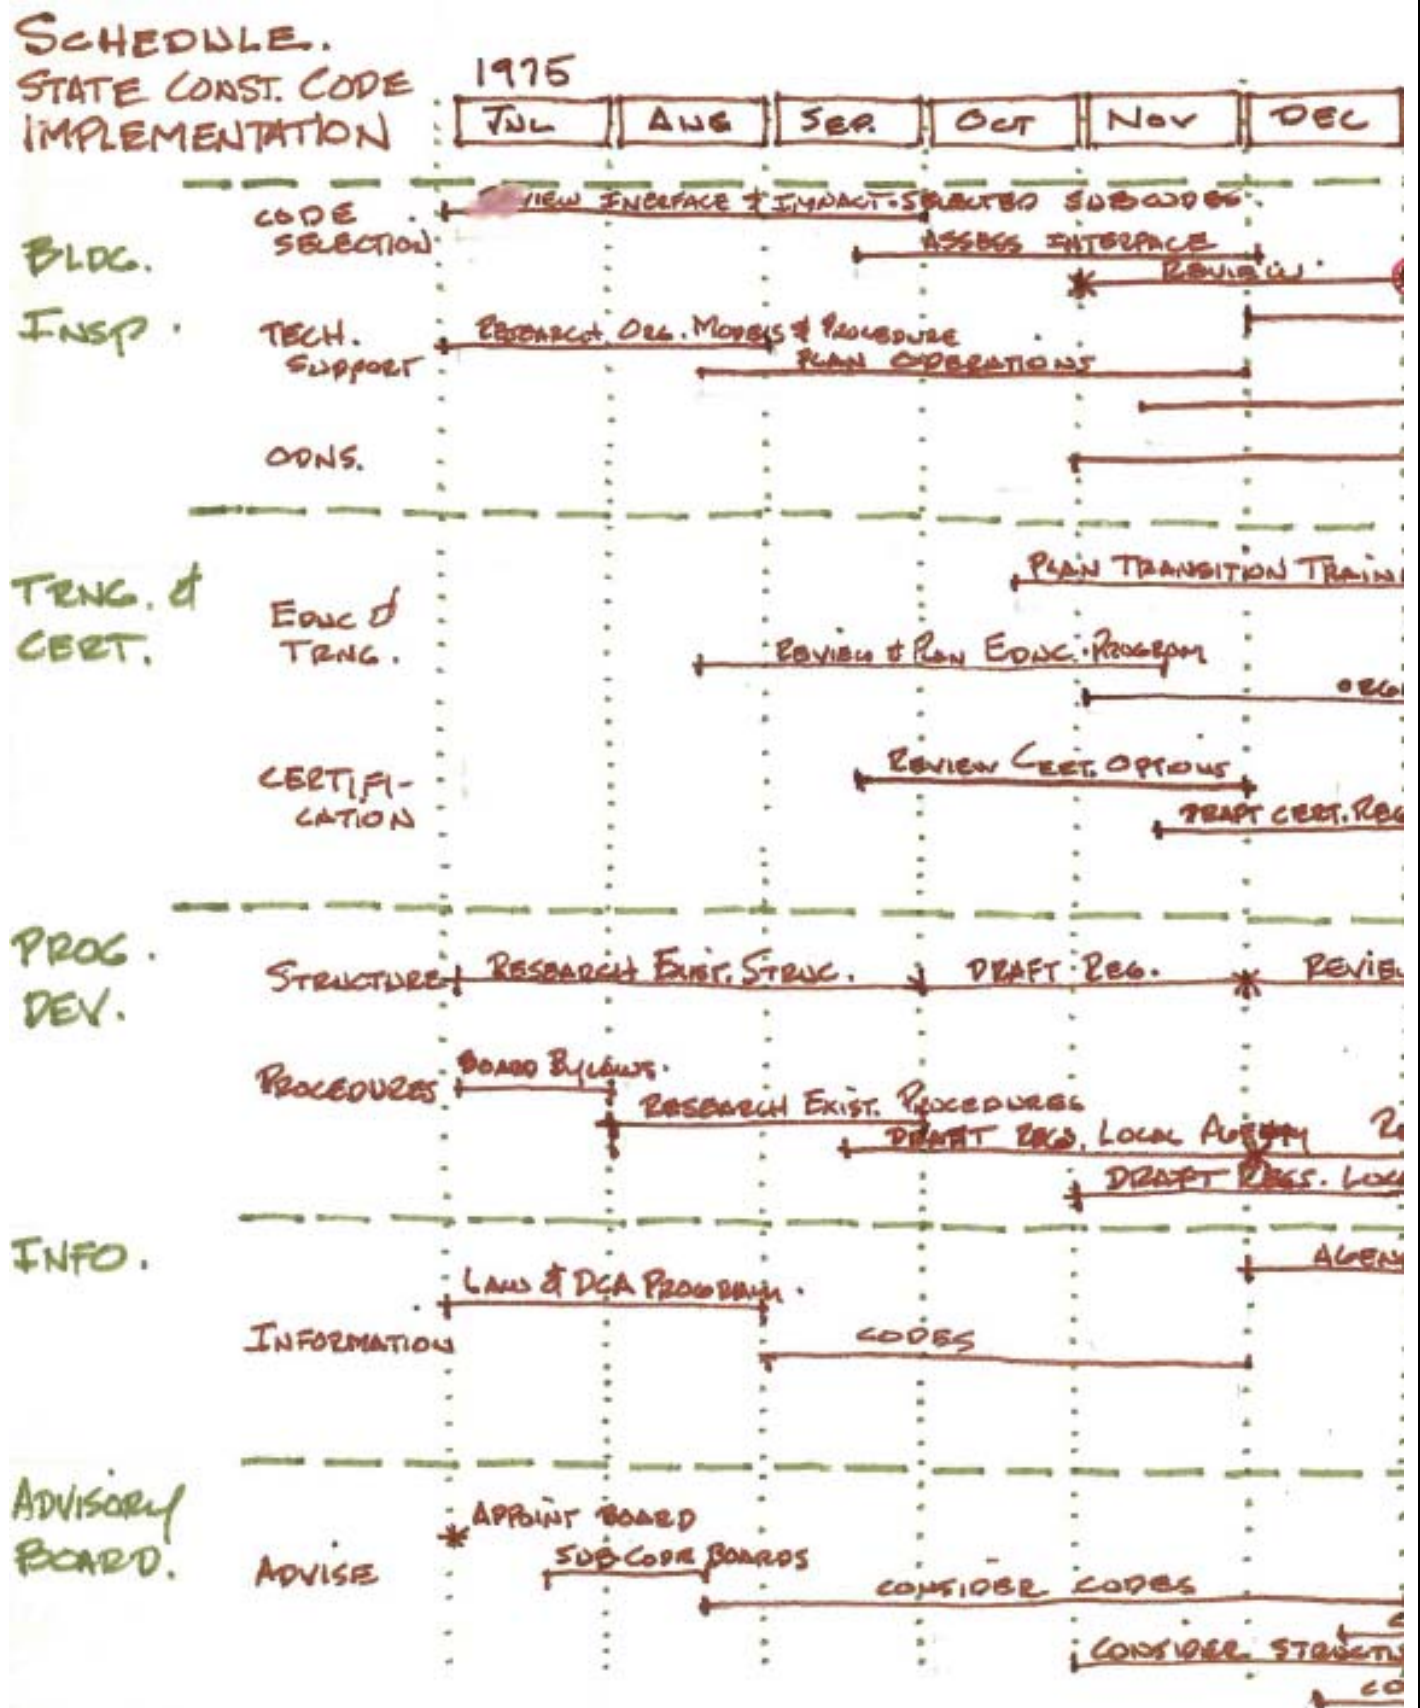 SCHEDULE.
STATE CONST. CODE
IMPLEMENTATION
1975
JUL AUG SEP. OCT NOV DEC
BLDG.
INSP.
CODE
SELECTION
VIEW INERFACE & IMPACT-SELECTED SUBCODES.
ASSESS INTERFACE
REVIEW
TECH.
SUPPORT
RESEARCH ORG. MODELS & PROCEDURE
PLAN OPERATIONS
OPNS.
TRNG. &
CERT.
EDUC &
TRNG.
PLAN TRANSITION TRAINI
REVIEW & PLAN EDUC. PROGRAM
ORG
CERTIFI-
CATION
REVIEW CERT. OPTIONS
DRAFT CERT. REG
PROG.
DEV.
STRUCTURE
RESEARCH EXIST. STRUC.
DRAFT REG.
REVIE
PROCEDURES
BOARD BYLAWS.
RESEARCH EXIST. PROCEDURES
DRAFT REGS. LOCAL AGENCY
RE
DRAFT REGS. LOCA
INFO.
AGEN
LAW & DCA PROGRAM.
INFORMATION
CODES
ADVISORY
BOARD.
APPOINT BOARD
ADVISE
SUBCODE BOARDS
CONSIDER CODES
CONSIDER STRUCTU
CO